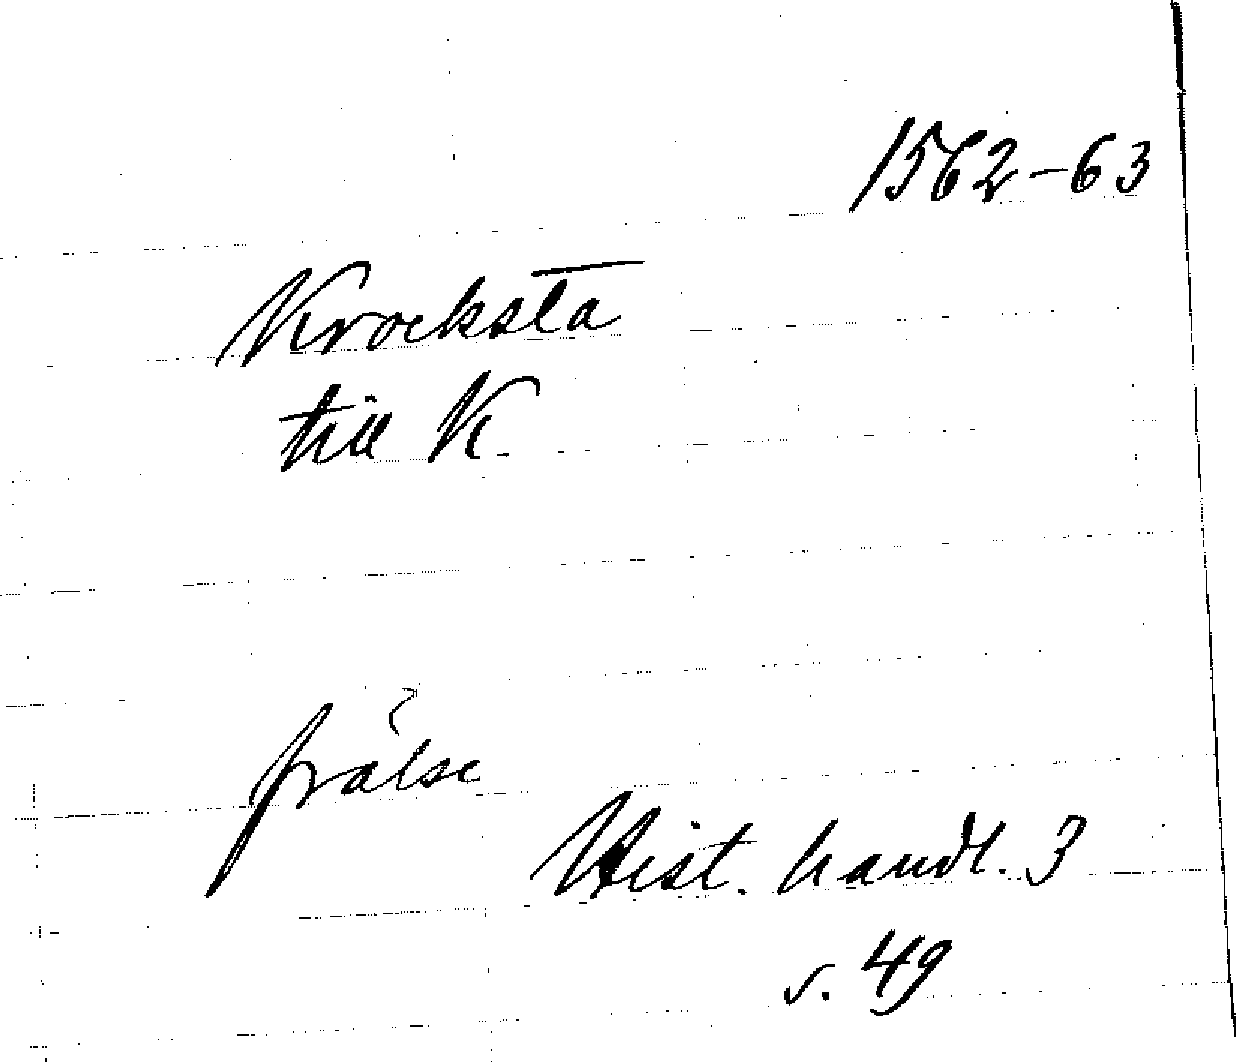 1562-63
Krocksta
till K
frälse
Hist. handl. 3
s. 49